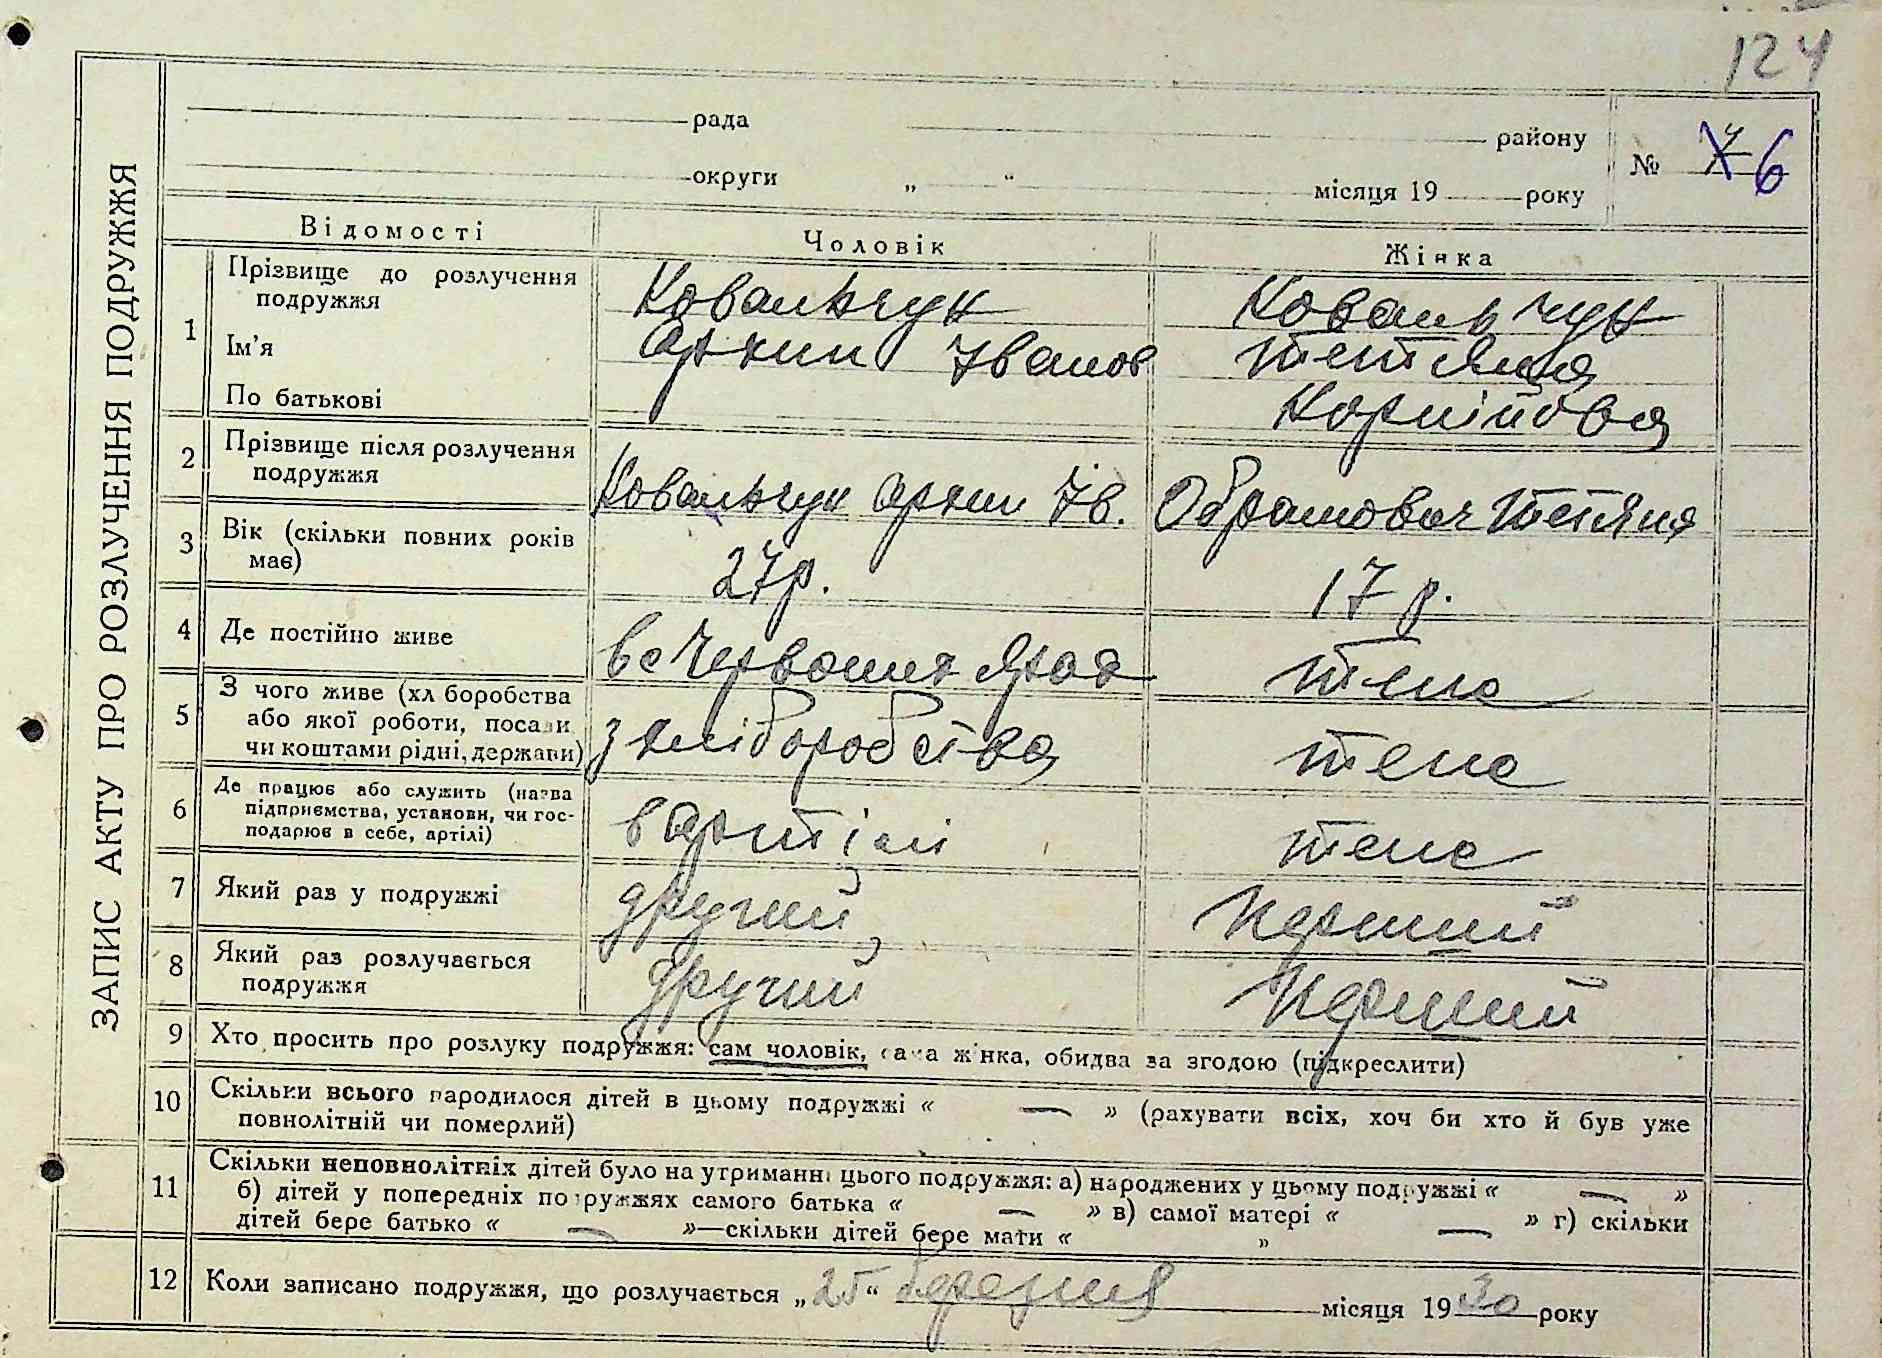 124
ЗАПИС АКТУ ПРО РОЗЛУЧЕННЯ ПОДРУЖЖЯ
рада району
№ 6
округи „ “ місяця 19 року
Відомості Чоловік Жінка
1 Прізвище до розлучення подружжя Ковальчук Ковальчук
Ім'я Архип Іванов Тетяна
По батькові Корнійова
2 Прізвище після розлучення подружжя Ковальчук Архип Ів. Обрамович Тетяна
3 Вік (скільки повних років має) 27 р. 17 р.
4 Де постійно живе в с Червоних теж
5 З чого живе (хліборобства або якої роботи, посади чи коштами рідні, держави) з хліборобства теж
6 Де працює або служить (назва підприємства, установи, чи господарює в себе, артілі) в артілі теж
7 Який раз у подружжі другий перший
8 Який раз розлучається подружжя другий перший
9 Хто просить про розлуку подружжя: сам чоловік, сама жінка, обидва за згодою (підкреслити)
10 Скільки всього народилося дітей в цьому подружжі « — » (рахувати всіх, хоч би хто й був уже
повнолітній чи померлий)
11 Скільки неповнолітніх дітей було на утриманні цього подружжя: а) народжених у цьому подружжі « — »
б) дітей у попередніх подружжях самого батька « — » в) самої матері « — » г) скільки
дітей бере батько « — »—скільки дітей бере мати « »
12 Коли записано подружжя, що розлучається „25“ березня місяця 1930 року